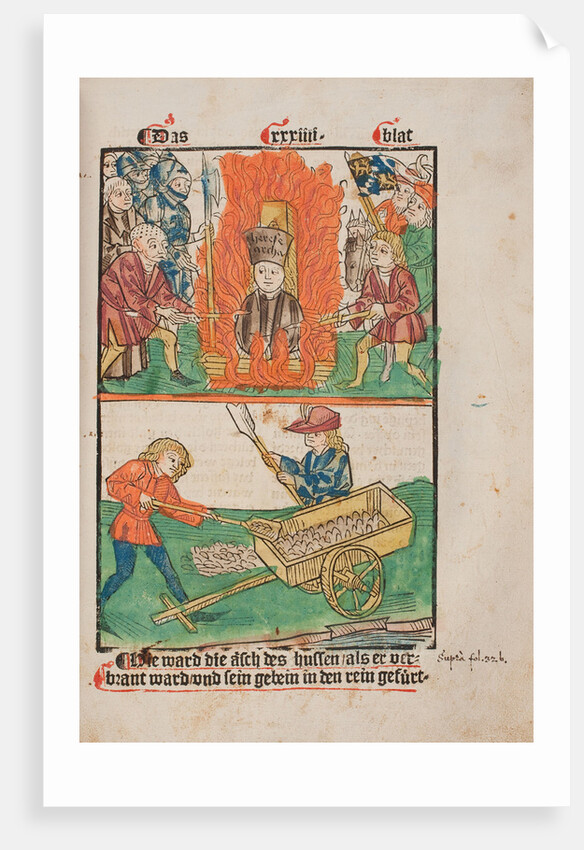 Das xxxiiii. blat
heresearcha
Wie ward die äsch des hussen/als er ver-
brant ward/vnd sein gebein in den rein gefürt.
Supra fol. 32 b.